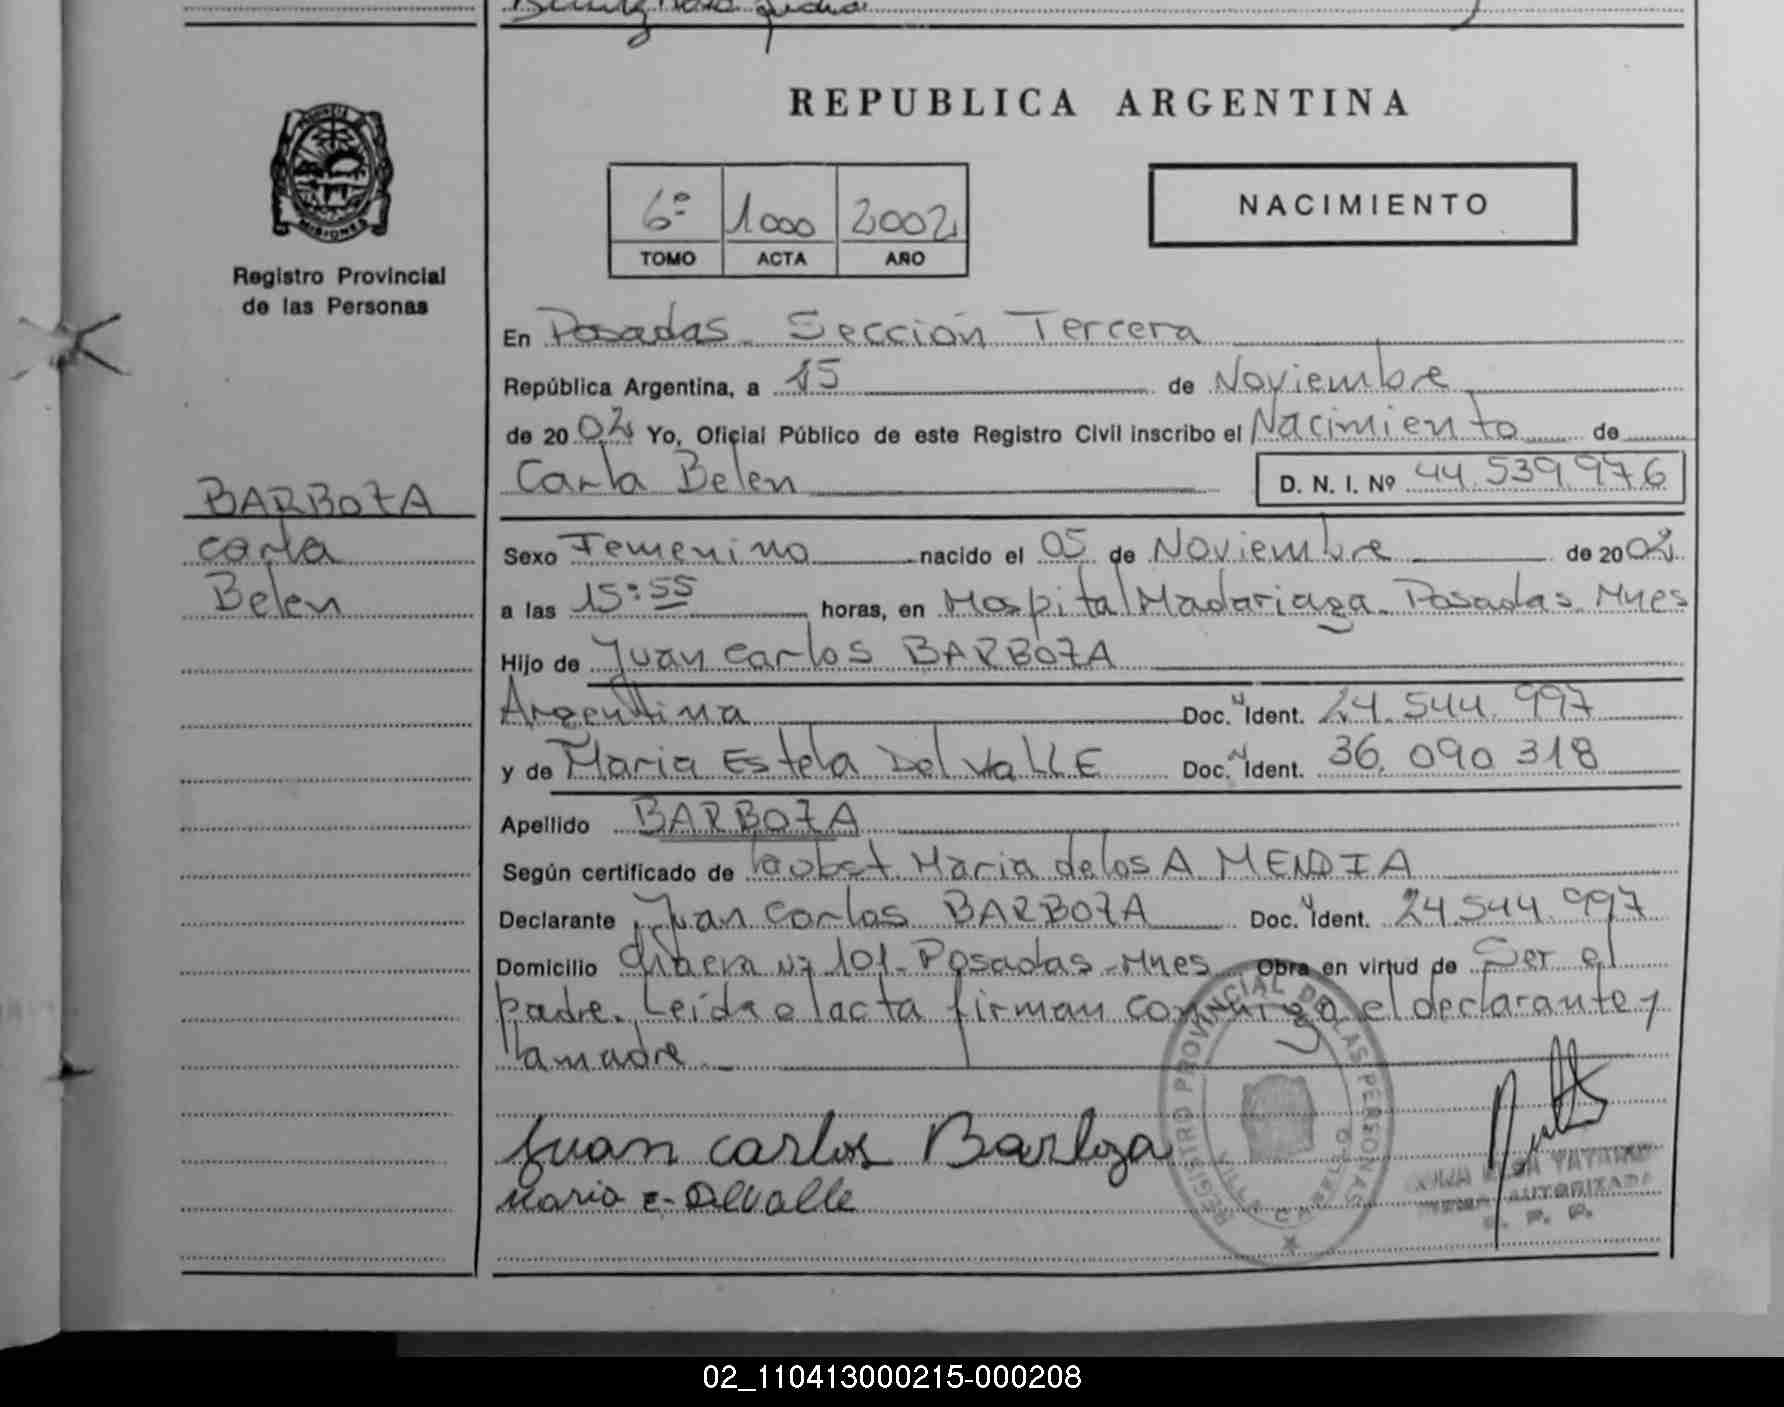 REPUBLICA ARGENTINA
6º 1000 2002
TOMO ACTA AÑO
NACIMIENTO
PROVINCIA DE MISIONES
Registro Provincial
de las Personas
BARBOZA
Carla
Belen
En Posadas. Sección Tercera
República Argentina, a 15 de Noviembre
de 2002 Yo, Oficial Público de este Registro Civil inscribo el Nacimiento de
Carla Belen D. N. I. Nº 44.539.976
Sexo Femenino nacido el 05 de Noviembre de 2002
a las 15:55 horas, en Hospital Madariaga. Posadas. Mnes
Hijo de Juan Carlos BARBOZA
Argentina Doc. Ident. 24.544.997
y de Maria Estela Del Valle Doc. Ident. 36.090.318
Apellido BARBOZA
Según certificado de Maria de los A MENDIA
Declarante Juan Carlos BARBOZA Doc. Ident. 24.544.997
Domicilio Nº 101. Posadas - Mnes Obra en virtud de Ser el
padre. Leída el acta firman conmigo el declarante y
la madre
Juan Carlos Barboza
Maria E. Delvalle
REGISTRO PROVINCIAL DE LAS PERSONAS
VILLA CABELLO
AUTORIZADA
02_110413000215-000208